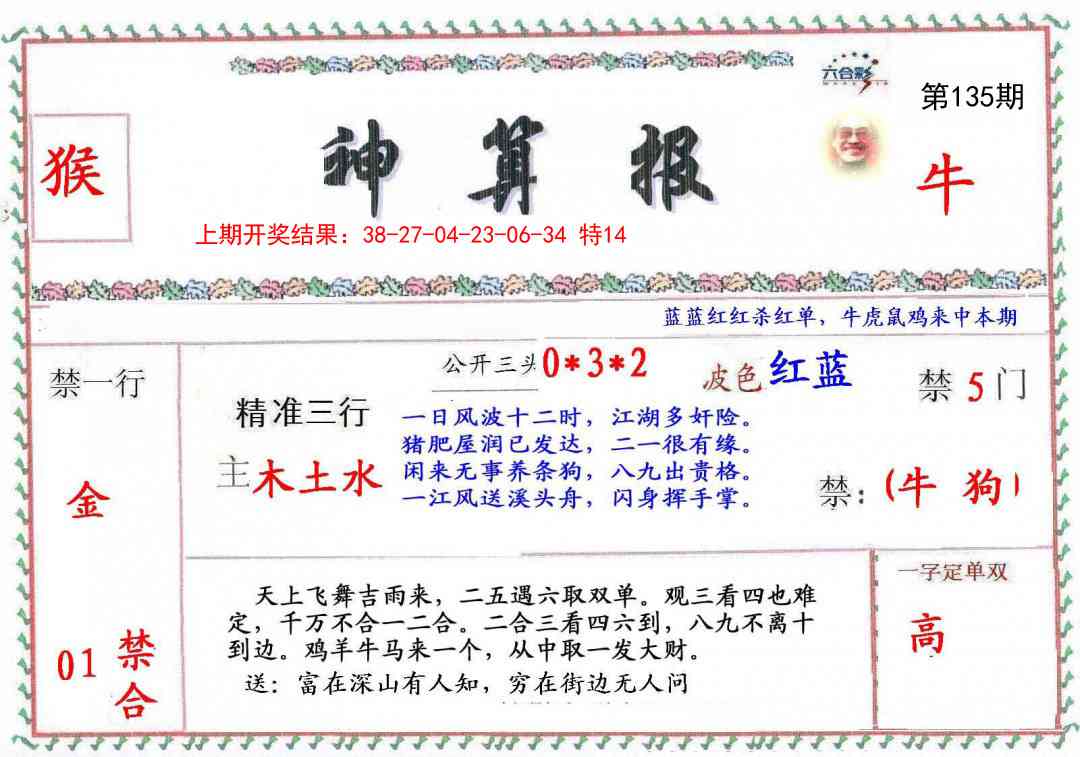 六合彩
第135期
猴
神算报
牛
上期开奖结果：38-27-04-23-06-34 特14
蓝蓝红红杀红单，牛虎鼠鸡来中本期
禁一行
公开三头0*3*2
波色红蓝
禁5门
精准三行
一日风波十二时，江湖多奸险。
猪肥屋润已发达，二一很有缘。
主木土水
闲来无事养条狗，八九出贵格。
一江风送溪头舟，闪身挥手掌。
禁：(牛 狗)
金
一字定单双
高
天上飞舞吉雨来，二五遇六取双单。观三看四也难
定，千万不合一二合。二合三看四六到，八九不离十
到边。鸡羊牛马来一个，从中取一发大财。
送：富在深山有人知，穷在街边无人问
01禁
合